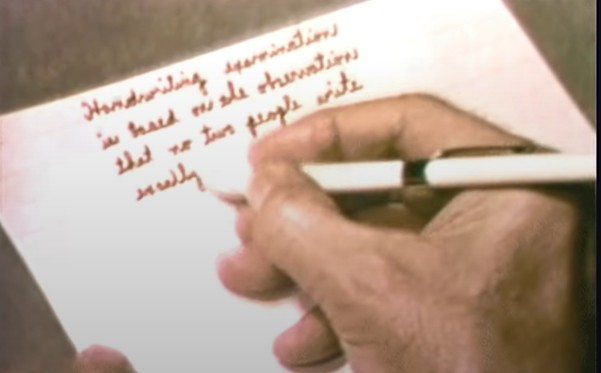 Handwriting examination
is based on the observation
that no two people write
exactly